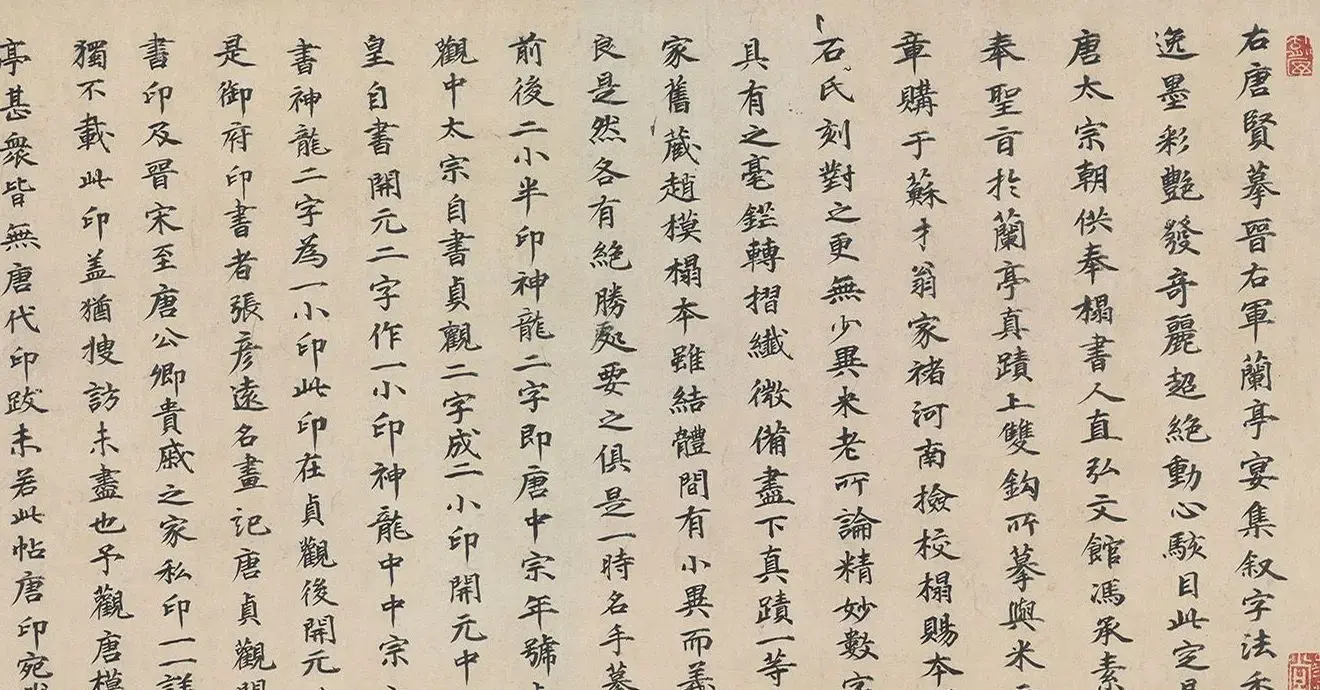 右唐賢摹晉右軍蘭亭宴集叙字法
逸墨彩艷發奇麗超絶動心駭目此定
唐太宗朝供奉榻書人直弘文館馮承素
奉聖旨於蘭亭真蹟上雙鈎所摹與米
章購于蘇才翁家褚河南檢校榻賜本
石氏刻對之更無少異米老所論精妙數字
具有之毫鋩轉摺纖微備盡下真蹟一等
家舊蔵趙模榻本雖結體間有小異而義
良是然各有絶勝處要之俱是一時名手摹
前後二小半印神龍二字即唐中宗年號
觀中太宗自書貞觀二字成二小印開元中
皇自書開元二字作一小印神龍中中宗
書神龍二字為一小印此印在貞觀後開元
是御府印書者張彦遠名畫記唐貞觀開
書印及晉宋至唐公卿貴戚之家私印一一詳
獨不載此印盖猶搜訪未盡也予觀唐模
亭甚衆皆無唐代印跋未若此帖唐印宛